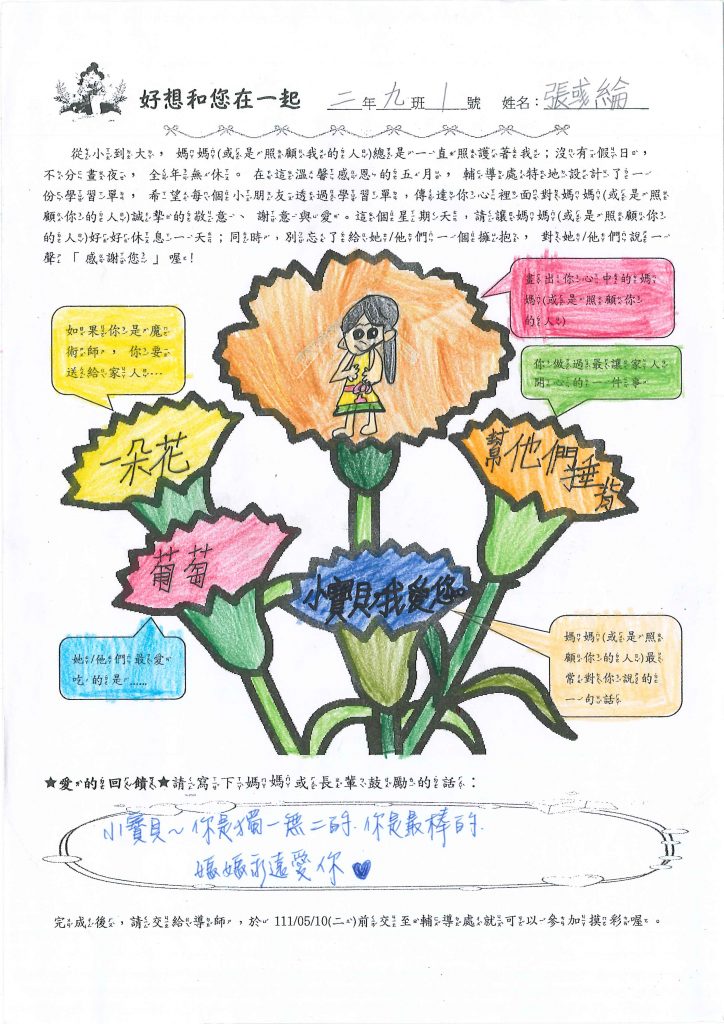 好想和您在一起 二年九班 1 號 姓名：張彧綸
從小到大，媽媽(或是照顧我的人)總是一直照護著我；沒有假日，
不分晝夜，全年無休。在這溫馨感恩的五月，輔導處特地設計了一
份學習單，希望每個小朋友透過學習單，傳達你心裡面對媽媽(或是照
顧你的人)誠摯的敬意、謝意與愛。這個星期天，請讓媽媽(或是照顧你
的人)好好休息一天；同時，別忘了給她/他們一個擁抱，對她/他們說一
聲「感謝您」喔！
畫出你心中的媽
媽(或是照顧你
的人)
如果你是魔
術師，你要
送給家人…
你做過最讓家人
開心的一件事
一朵花
幫他們捶背
葡萄
小寶貝，我愛您。
她/他們最愛
吃的是……
媽媽(或是照
顧你的人)最
常對你說的
一句話
★愛的回饋★請寫下媽媽或長輩鼓勵的話：
小寶貝～你是獨一無二的.你是最棒的.
媽媽永遠愛你♥
完成後，請交給導師，於 111/05/10(二)前交至輔導處就可以參加摸彩喔。